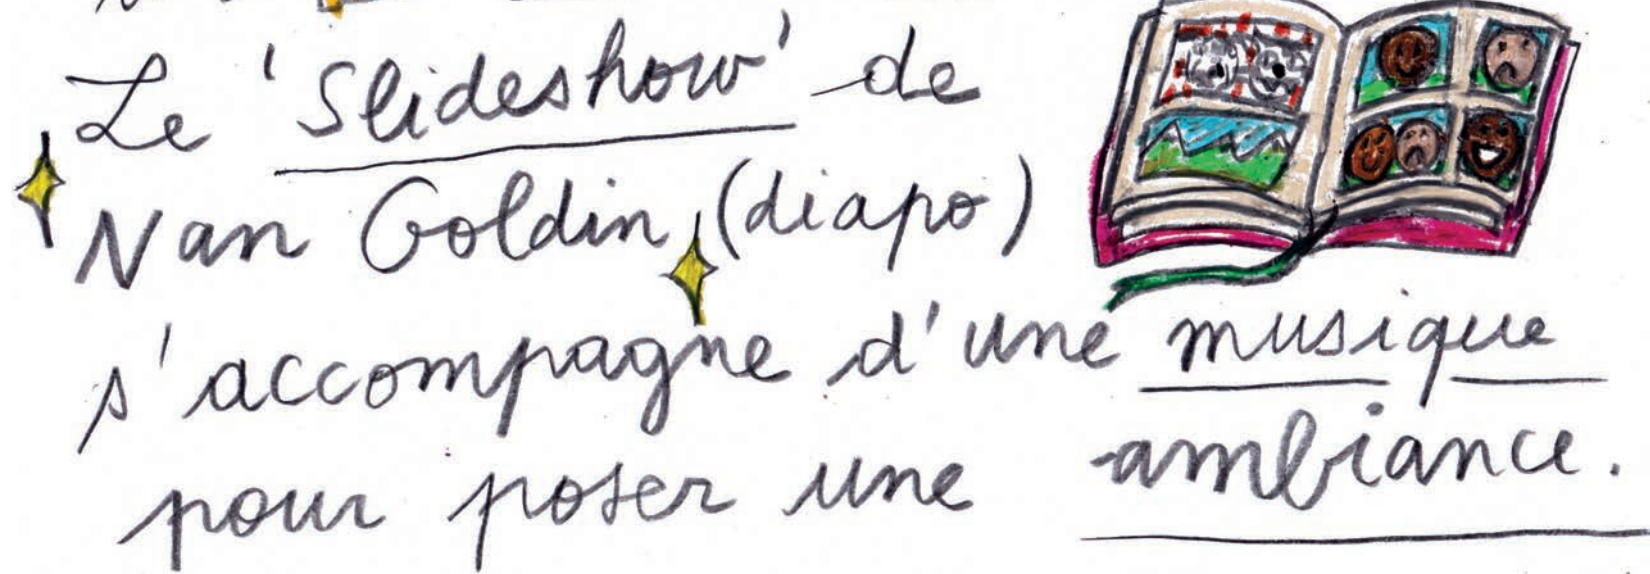 Le 'Slideshow' de
Nan Goldin (diapo)
s'accompagne d'une musique
pour poser une ambiance.